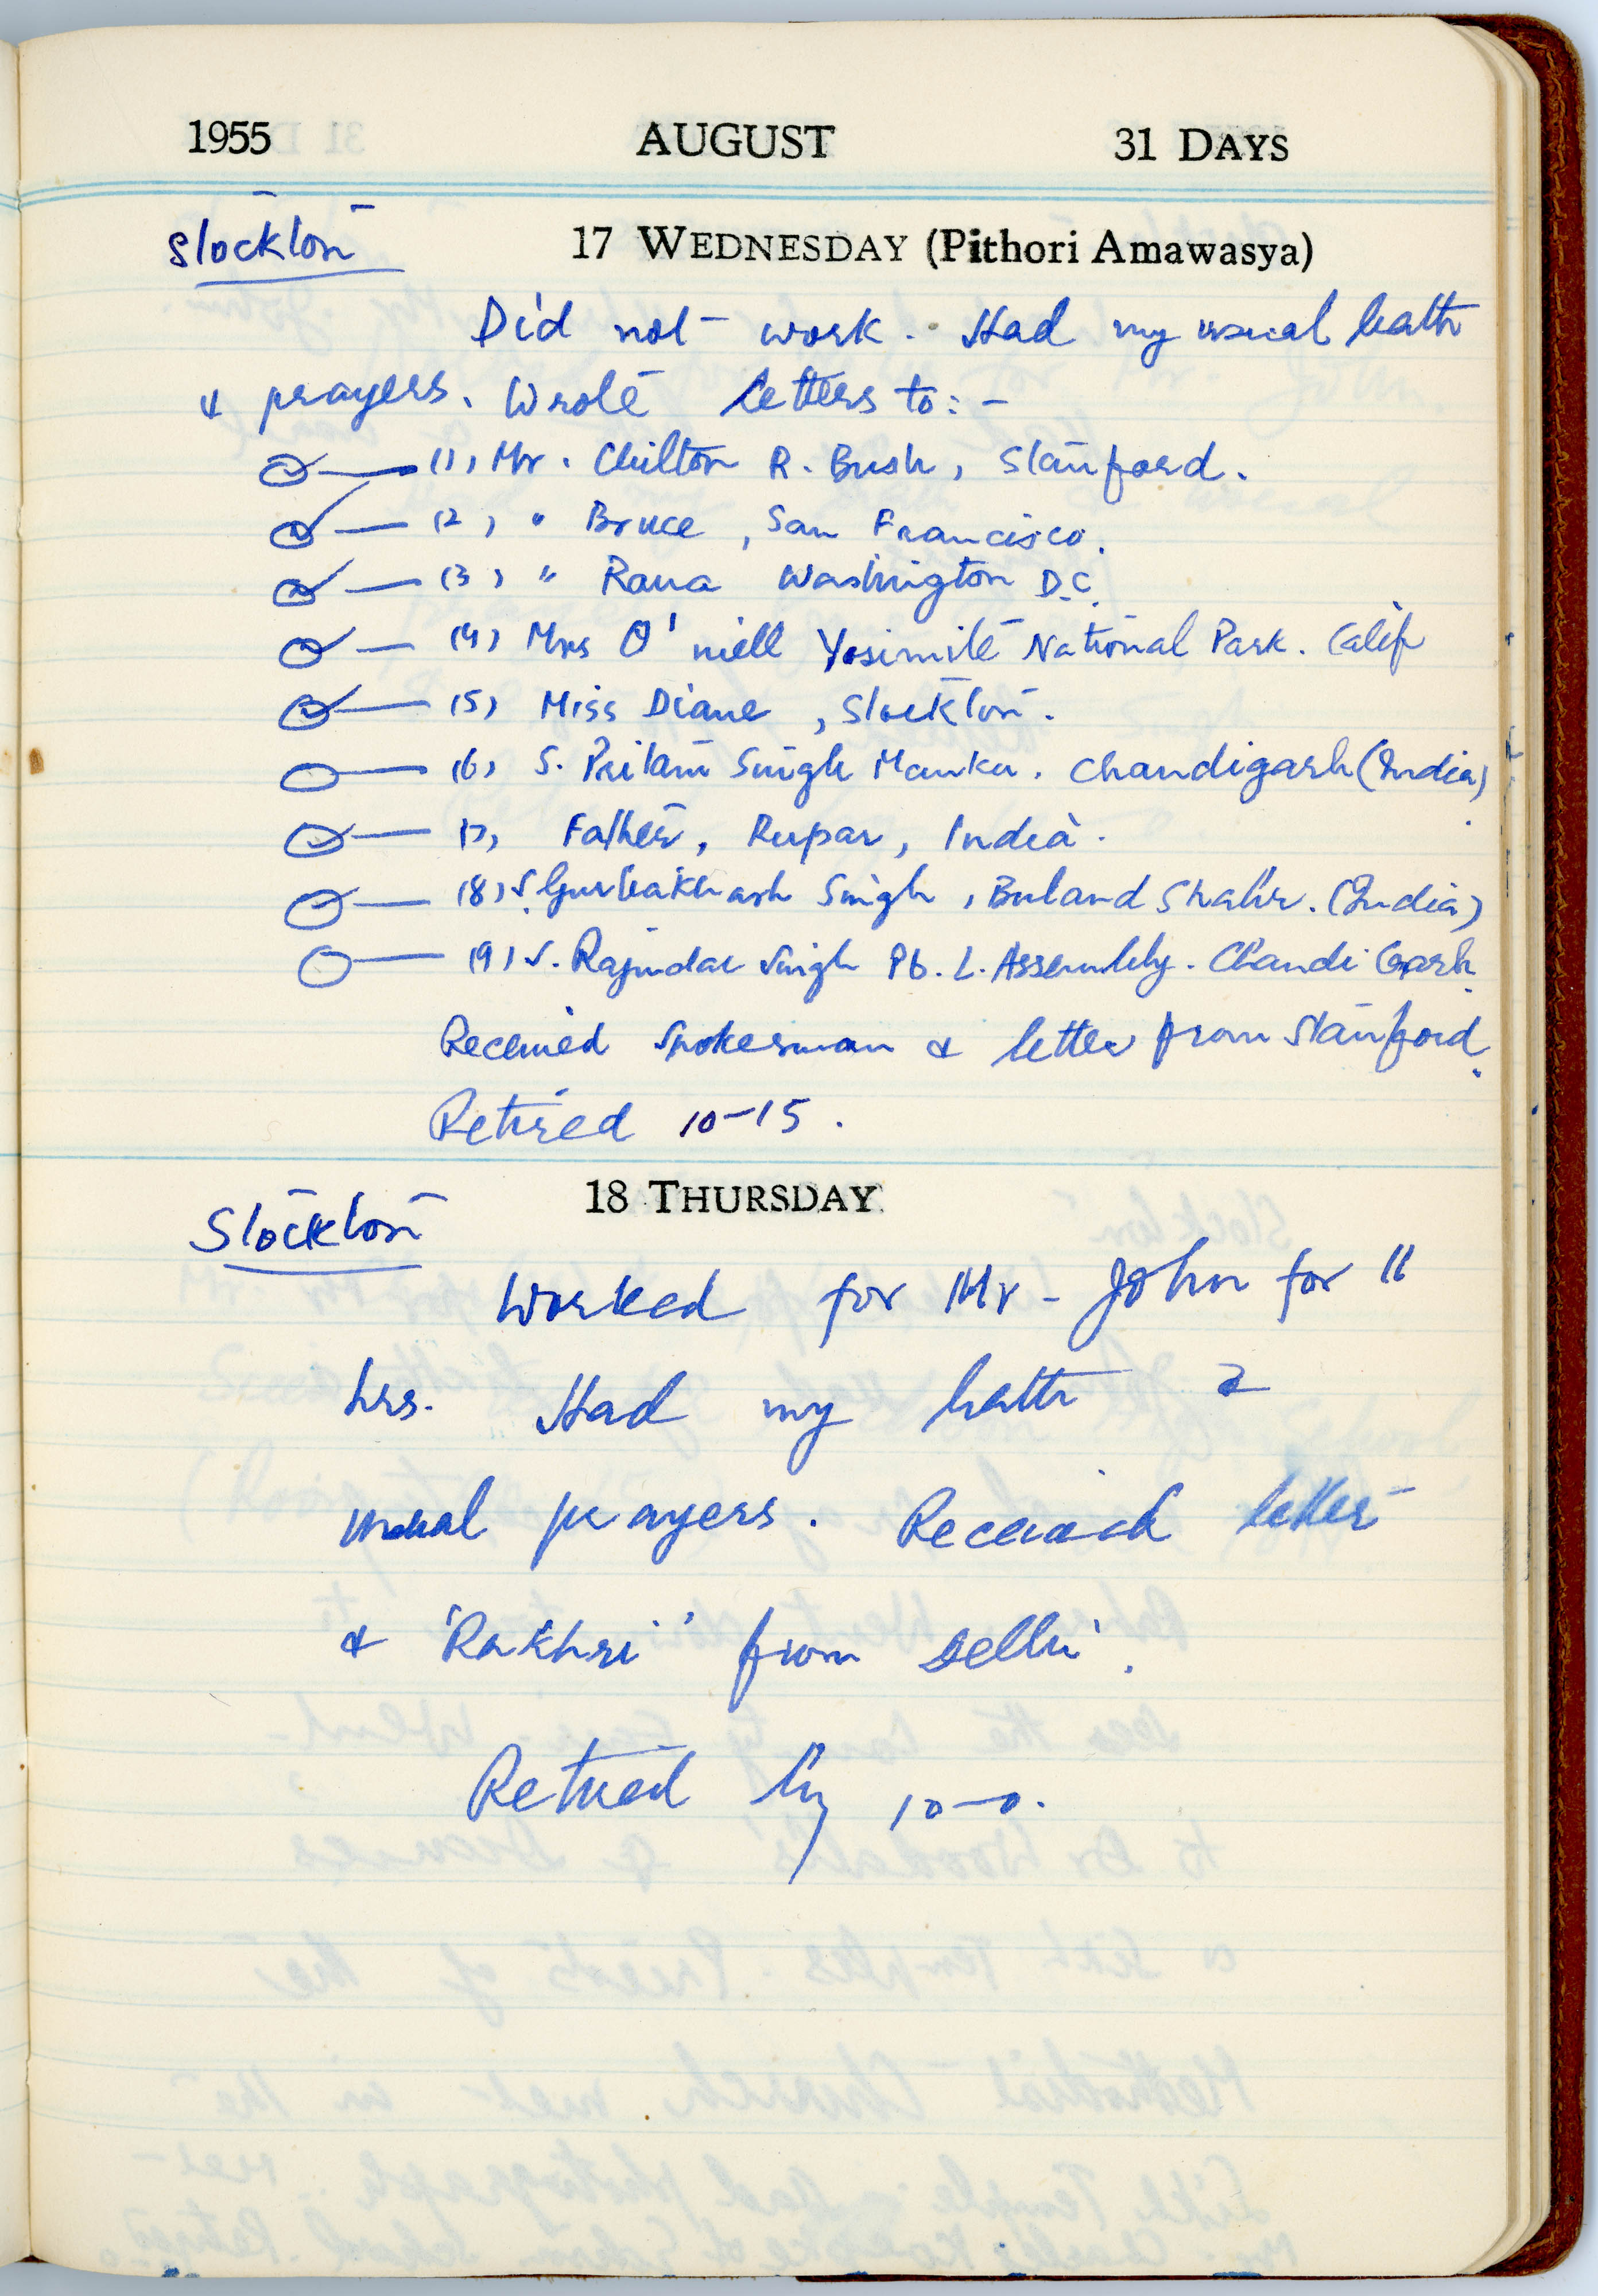 1955 AUGUST 31 DAYS
Stockton 17 WEDNESDAY (Pithori Amawasya)
Did not work. Had my usual bath
& prayers. Wrote letters to:-
(1) Mr. Chilton R. Bush, Stanford.
(2) " Bruce, San Francisco.
(3) " Rana Washington D.C.
(4) Mrs O'niell Yosimite National Park. Calif
(5) Miss Diane, Stockton.
(6) S. Pritam Singh Manku. Chandigarh (India)
(7) Father, Rupar, India.
(8) S. Gurbakhash Singh, Buland Shahr. (India)
(9) S. Rajindar Singh Pb. L. Assembly. Chandi Garh.
Received Spokesman & letter from Stanford.
Retired 10-15.
18 THURSDAY
Stockton
Worked for Mr. John for 11
hrs. Had my bath &
usual prayers. Received letter
& 'Rakhri' from Delhi.
Retired by 10-0.